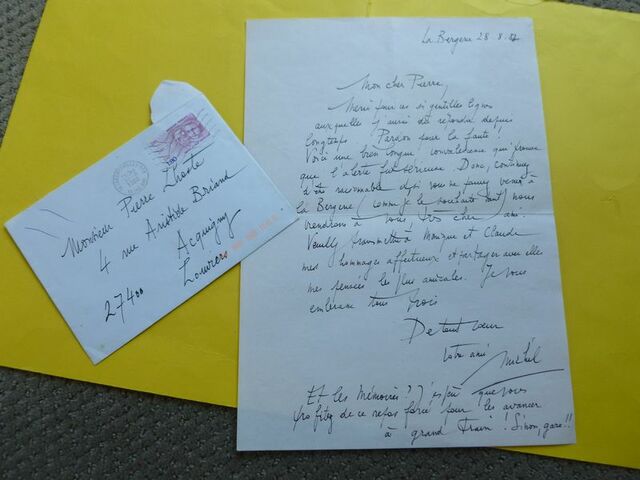 La Bergerie 28.8.87
Mon cher Pierre,
Merci pour ces si gentilles lignes
auxquelles j'aurai dû répondre depuis
longtemps Pardon pour la faute!
Voici une bien longue convalescence qui prouve
que l'alerte fut sérieuse. Donc, continuez
d'être raisonnable et si vous ne pouvez venir à
La Bergerie (comme je le souhaite tant) nous
viendrons à vous très cher ami.
Veuillez transmettre à Monique et Claude
mes hommages affectueux et partager avec elle
mes pensées les plus amicales. Je vous
embrasse tous trois
De tout cœur
Votre ami
Michel
Et les Mémoires? J'espère que vous
profitez de ce repos forcé pour les avancer
à grand train! Sinon, gare!!
1,80
Monsieur Pierre Lhoste
4 rue Aristide Briand
Acquigny
27400 Louviers